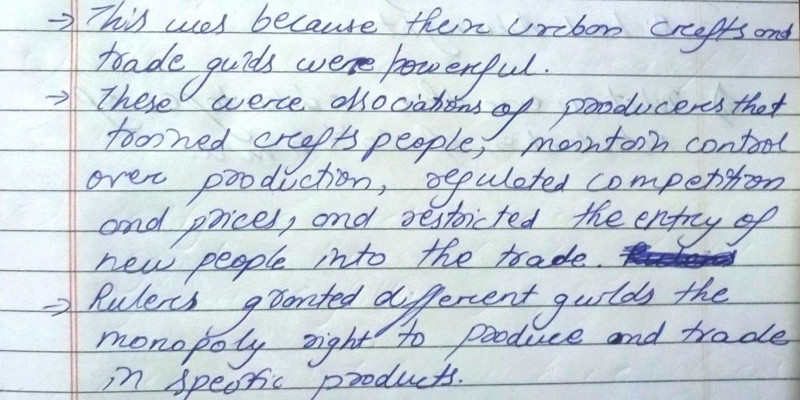 → This was because their urban crafts and
trade guids were powerful.
→ These were associations of producers that
trained crafts people, maintain control
over production, regulated competition
and prices, and restricted the entry of
new people into the trade.
→ Rulers granted different guilds the
monopoly right to produce and trade
in specific products.